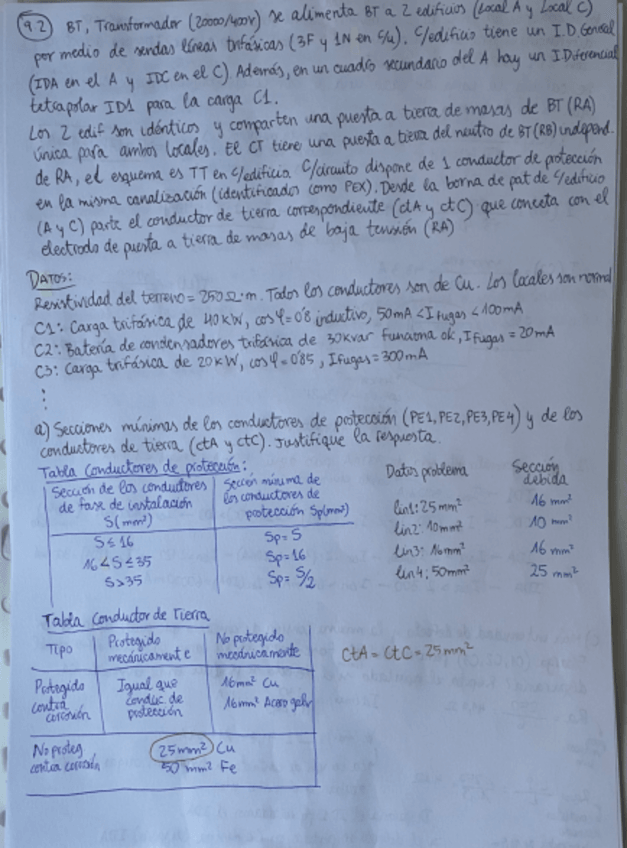 9.2 BT, Transformador (20000/400V) se alimenta BT a 2 edificios (Local A y Local C)
por medio de sendas líneas trifásicas (3F y 1N en c/u). C/edificio tiene un I.D General
(IDA en el A y IDC en el C). Además, en un cuadro secundario del A hay un I.Diferencial
tetrapolar ID1 para la carga C1.
Los 2 edif son idénticos y comparten una puesta a tierra de masas de BT (RA)
única para ambos locales. El CT tiene una puesta a tierra del neutro de BT (RB) independ.
de RA, el esquema es TT en c/edificio. C/circuito dispone de 1 conductor de protección
en la misma canalización (identificados como PEX). Desde la borna de pat de c/edificio
(A y C) parte el conductor de tierra correspondiente (ctA y ctC) que conecta con el
electrodo de puesta a tierra de masas de baja tensión (RA)
DATOS:
Resistividad del terreno = 250 Ω·m. Todos los conductores son de Cu. Los locales son normal
C1: Carga trifásica de 40kW, cos φ = 0'8 inductivo, 50mA < I fugas < 100mA
C2: Batería de condensadores trifásica de 30kvar funciona ok, I fugas = 20mA
C3: Carga trifásica de 20kW, cos φ = 0'85, I fugas = 300mA
⋮
a) Secciones mínimas de los conductores de protección (PE1, PE2, PE3, PE4) y de los
conductores de tierra (ctA y ctC). Justifique la respuesta.
Tabla Conductores de protección:
Sección de los conductores
de fase de instalación
S(mm²)
Sección mínima de
los conductores de
protección Sp(mm²)
S ≤ 16
Sp = S
16 < S ≤ 35
Sp = 16
S > 35
Sp = S/2
Datos problema
Sección
debida
lin1: 25mm²
16 mm²
lin2: 10mm²
10 mm²
lin3: 16mm²
16 mm²
lin4: 50mm²
25 mm²
Tabla Conductor de Tierra
Tipo
Protegido
mecánicamente
No protegido
mecánicamente
Protegido
contra
corrosión
Igual que
conduc de
protección
16mm² Cu
16mm² Acero galv
No proteg
contra corrosión
25mm² Cu
50 mm² Fe
CtA = CtC = 25mm²